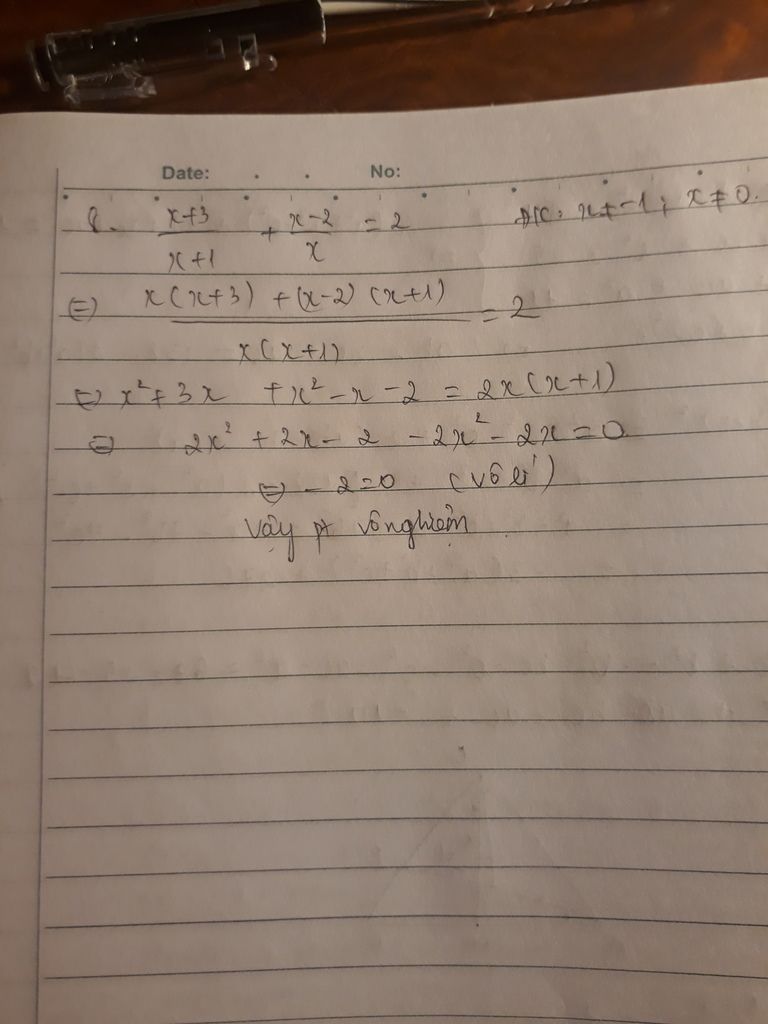 Date: . . No:
8. x+3/x+1 + x-2/x = 2 ĐK: x ≠ -1; x ≠ 0.
⇔ x(x+3) + (x-2)(x+1)/x(x+1) = 2
⇔ x² + 3x + x² - x - 2 = 2x(x+1)
⇔ 2x² + 2x - 2 - 2x² - 2x = 0
⇔ - 2 = 0 (vô lí)
Vậy pt vô nghiệm